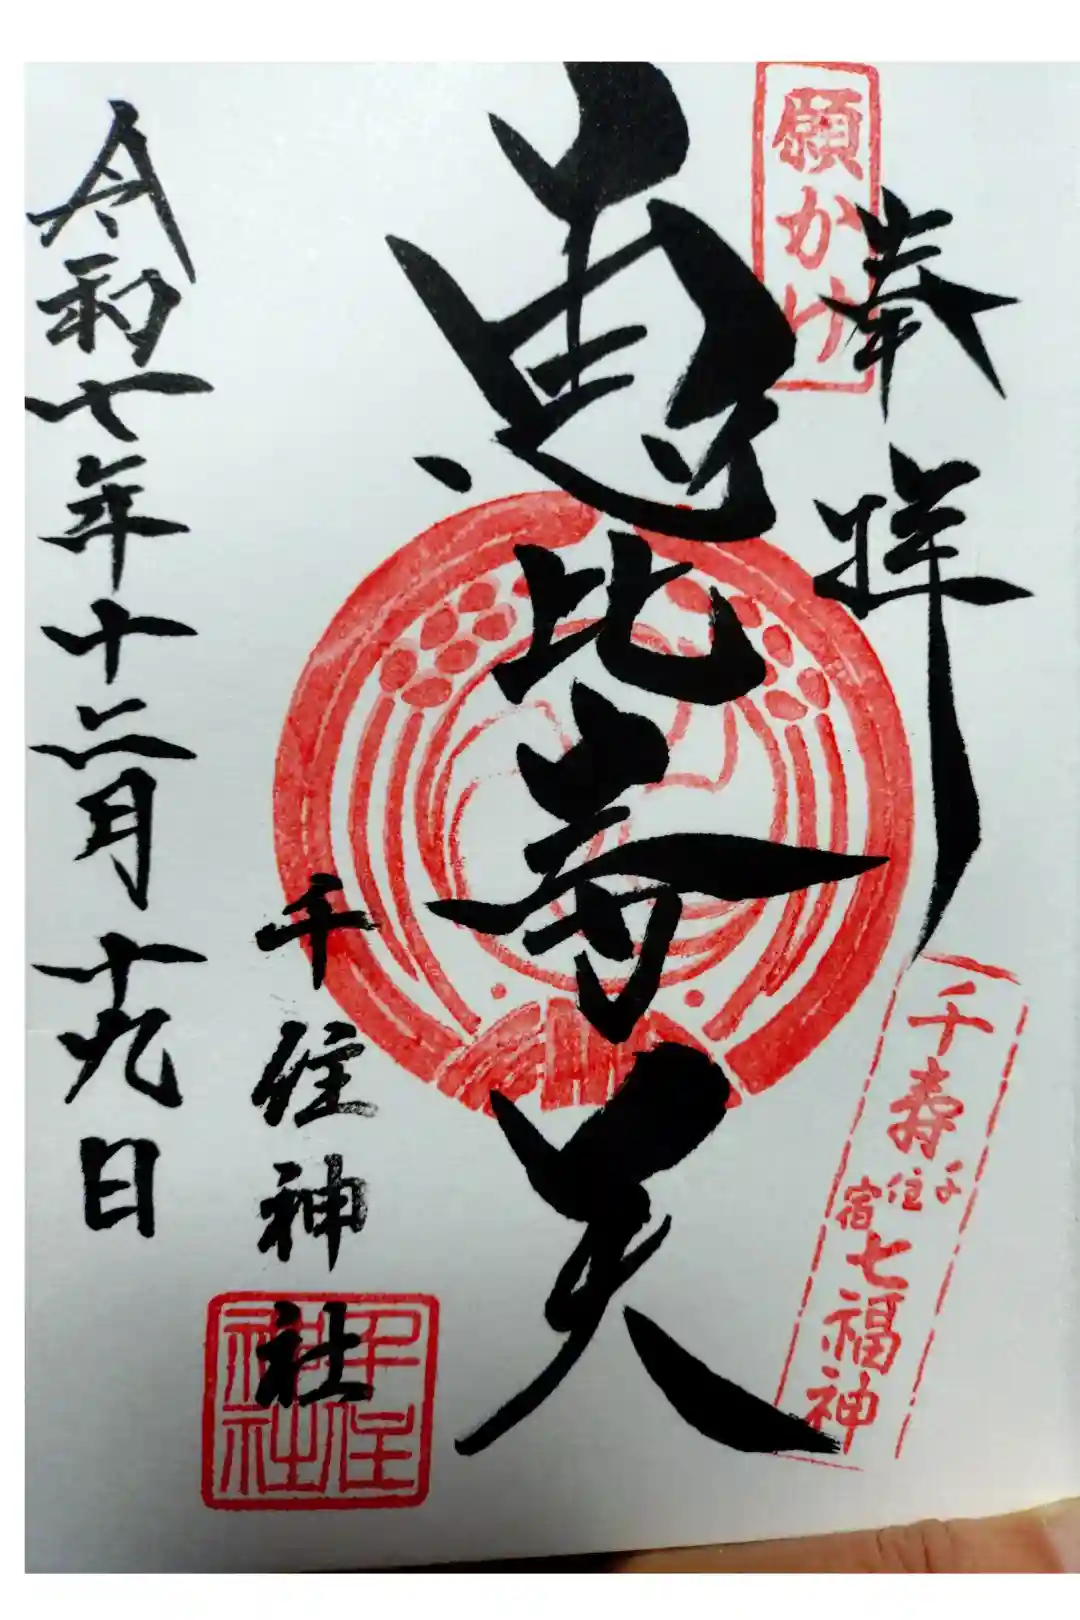 願かけ
奉拝
千寿
千住宿
七福神
恵比寿天
千住神社
千住神社
令和七年十二月十九日